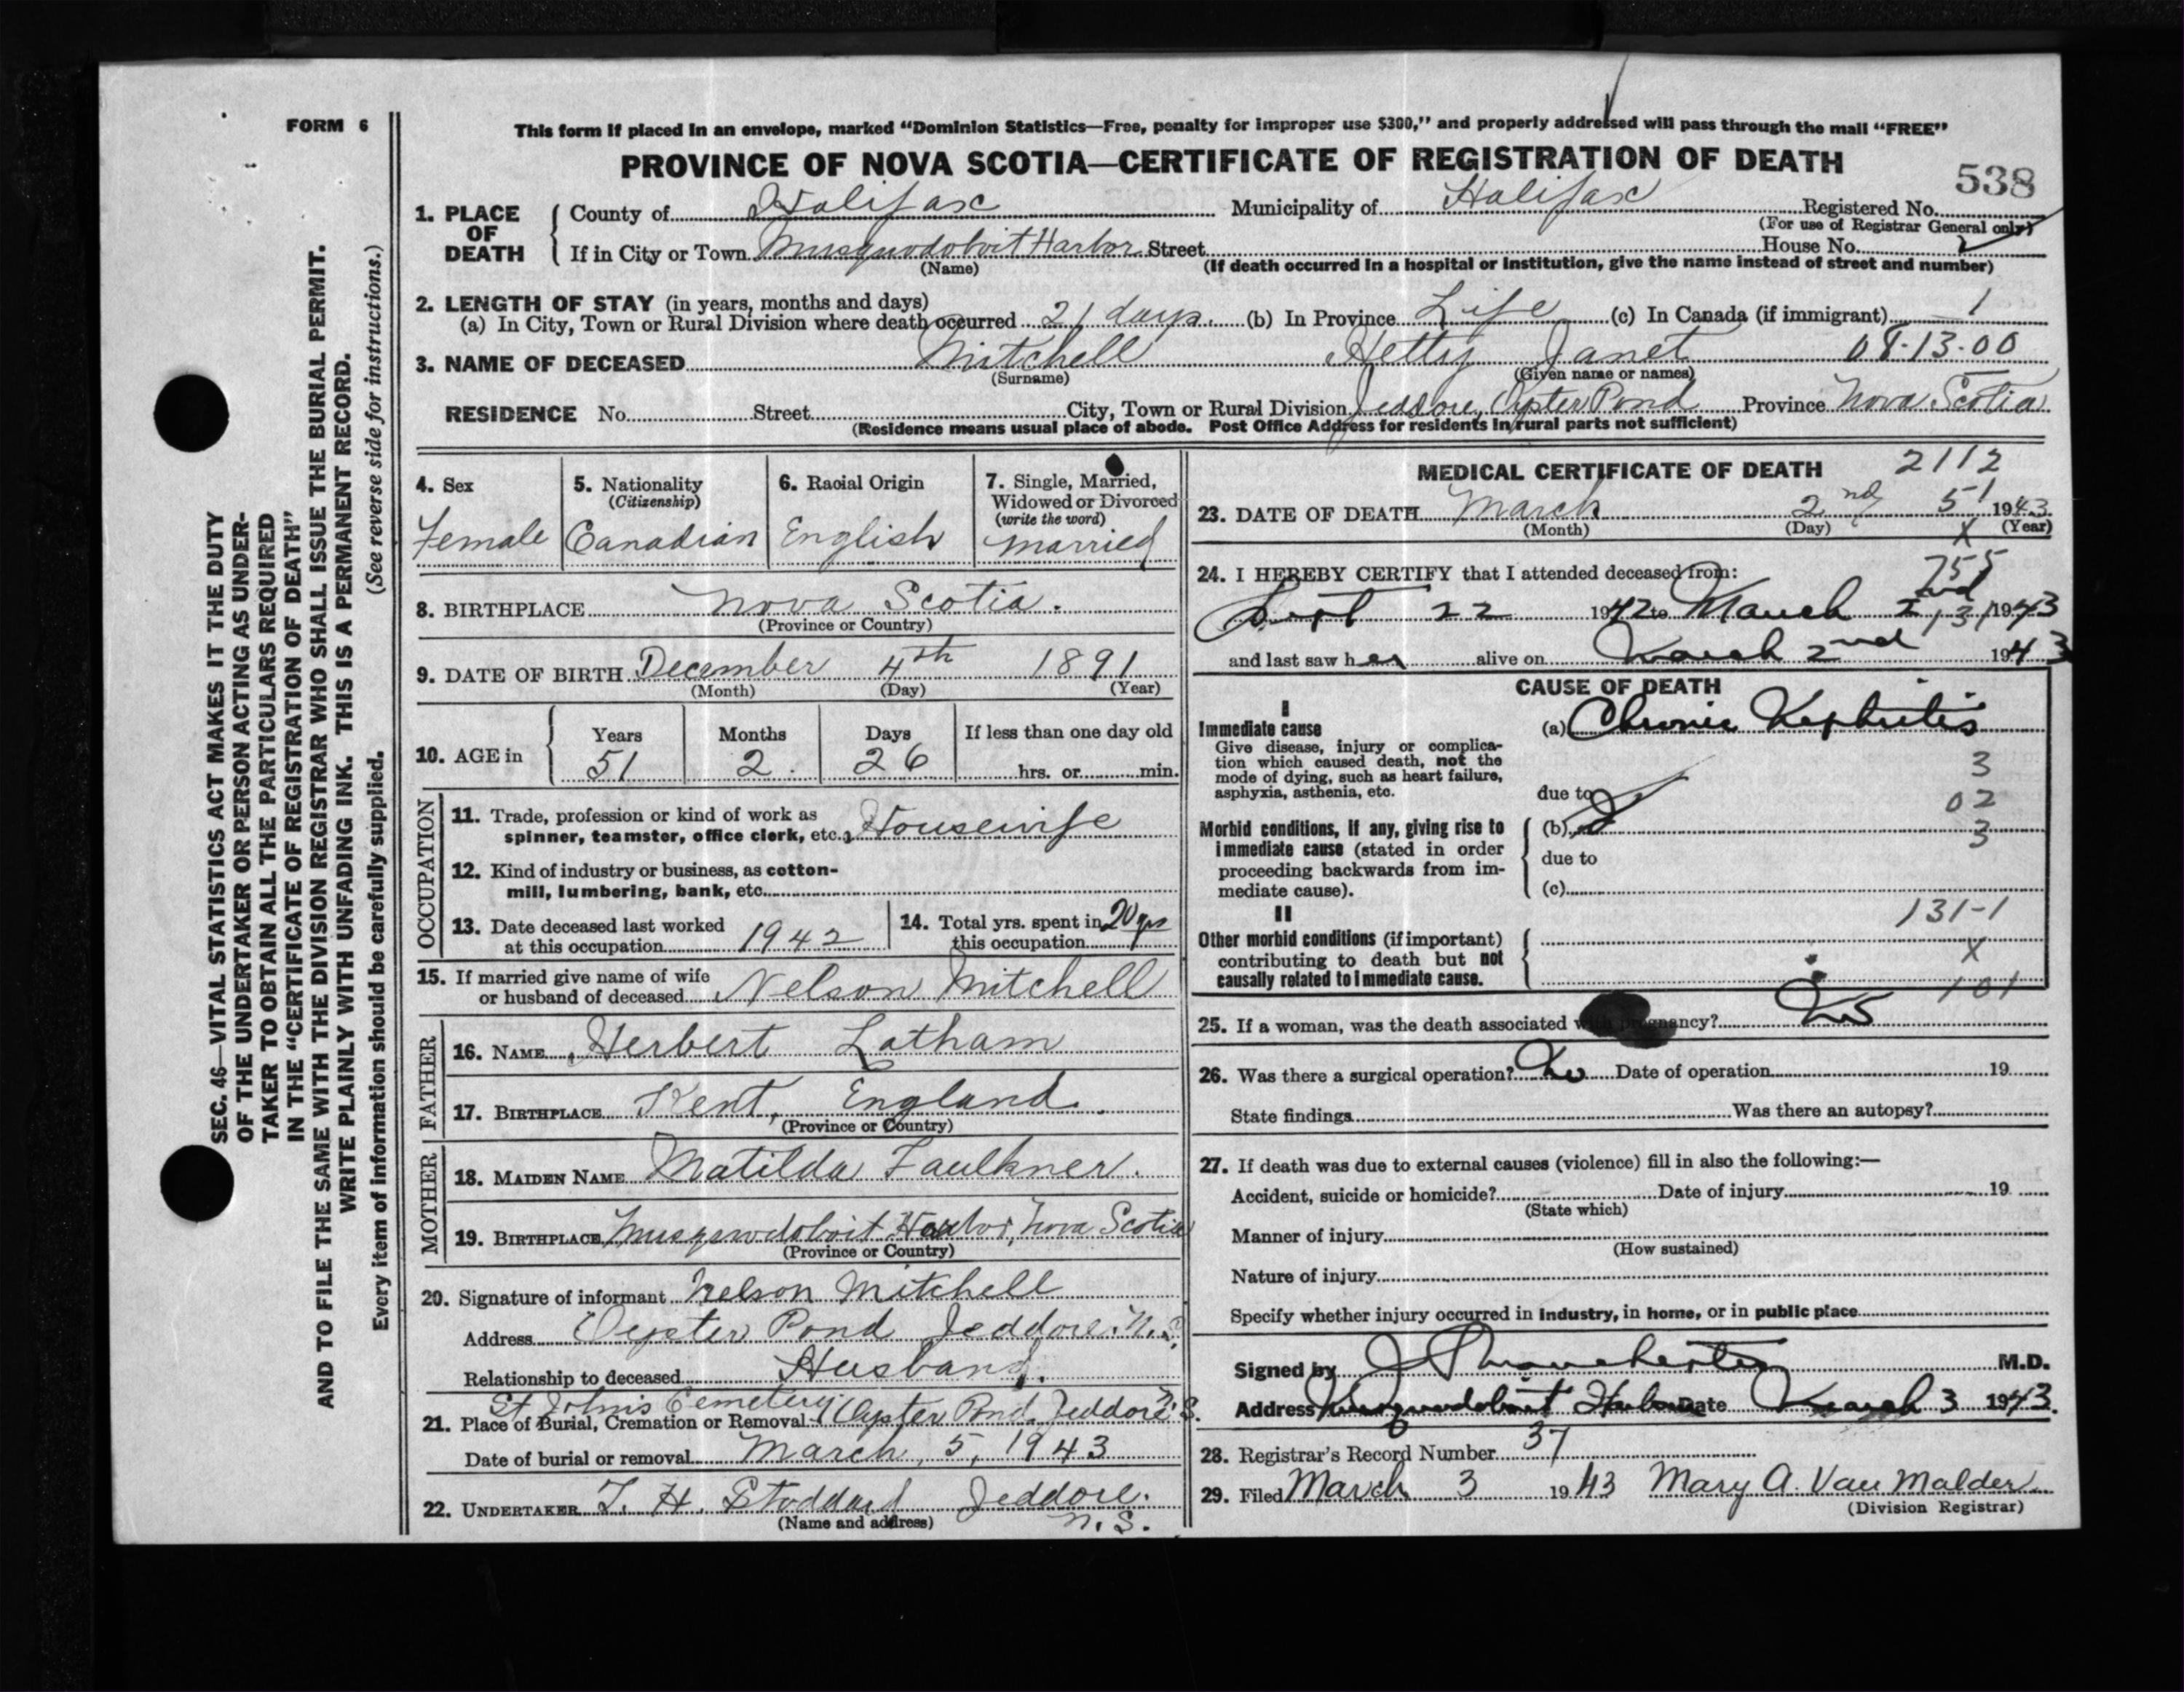 FORM 6
This form if placed in an envelope, marked “Dominion Statistics—Free, penalty for improper use $300,” and properly addressed will pass through the mail “FREE”
PROVINCE OF NOVA SCOTIA—CERTIFICATE OF REGISTRATION OF DEATH
538
1. PLACE OF DEATH
County of Halifax Municipality of Halifax Registered No.
(For use of Registrar General only)
If in City or Town Musquodoboit Harbor Street House No.
(Name) (If death occurred in a hospital or institution, give the name instead of street and number)
2. LENGTH OF STAY (in years, months and days)
(a) In City, Town or Rural Division where death occurred 21 days (b) In Province Life (c) In Canada (if immigrant) 1
3. NAME OF DECEASED Mitchell Hetty Janet 08-13-00
(Surname) (Given name or names)
RESIDENCE No. Street City, Town or Rural Division Jeddore, Oyster Pond Province Nova Scotia
(Residence means usual place of abode. Post Office Address for residents in rural parts not sufficient)
4. Sex
Female
5. Nationality
(Citizenship)
Canadian
6. Racial Origin
English
7. Single, Married,
Widowed or Divorced
(write the word)
Married
8. BIRTHPLACE Nova Scotia.
(Province or Country)
9. DATE OF BIRTH December 4th 1891
(Month) (Day) (Year)
10. AGE in
Years Months Days If less than one day old
51 2 26 hrs. or min.
OCCUPATION
11. Trade, profession or kind of work as
spinner, teamster, office clerk, etc. Housewife
12. Kind of industry or business, as cotton-
mill, lumbering, bank, etc.
13. Date deceased last worked
at this occupation 1942
14. Total yrs. spent in 20 yrs
this occupation
15. If married give name of wife
or husband of deceased Nelson Mitchell
FATHER
16. NAME Herbert Latham
17. BIRTHPLACE Kent, England.
(Province or Country)
MOTHER
18. MAIDEN NAME Matilda Faulkner.
19. BIRTHPLACE Musquodoboit Harbor, Nova Scotia
(Province or Country)
20. Signature of informant Nelson Mitchell
Address Oyster Pond Jeddore. N.S
Relationship to deceased Husband.
St John's Cemetery
21. Place of Burial, Cremation or Removal Oyster Pond Jeddore N.S.
Date of burial or removal March, 5, 1943
22. UNDERTAKER T. H. Stoddard Jeddore.
(Name and address) N.S.
MEDICAL CERTIFICATE OF DEATH 2112
23. DATE OF DEATH March 2nd 51 1943
(Month) (Day) X (Year)
24. I HEREBY CERTIFY that I attended deceased from: 755
Sept 22 1942 to March 2nd 131 1943
and last saw her alive on March 2nd 1943
CAUSE OF DEATH
I
Immediate cause (a) Chronic Nephritis
Give disease, injury or complica-
tion which caused death, not the
mode of dying, such as heart failure,
asphyxia, asthenia, etc.
3
due to
02
Morbid conditions, if any, giving rise to
immediate cause (stated in order
proceeding backwards from im-
mediate cause).
(b)
3
due to
(c)
131-1
II
Other morbid conditions (if important)
contributing to death but not
causally related to immediate cause.
X
101
25. If a woman, was the death associated with pregnancy? No
26. Was there a surgical operation? No Date of operation 19
State findings Was there an autopsy?
27. If death was due to external causes (violence) fill in also the following:—
Accident, suicide or homicide? Date of injury 19
(State which)
Manner of injury
(How sustained)
Nature of injury
Specify whether injury occurred in industry, in home, or in public place
Signed by M.D.
Address Musquodoboit Harbour Date March 3 1943.
28. Registrar's Record Number 37
29. Filed March 3 1943 Mary A. Van Malder
(Division Registrar)
SEC. 46—VITAL STATISTICS ACT MAKES IT THE DUTY
OF THE UNDERTAKER OR PERSON ACTING AS UNDER-
TAKER TO OBTAIN ALL THE PARTICULARS REQUIRED
IN THE “CERTIFICATE OF REGISTRATION OF DEATH”
AND TO FILE THE SAME WITH THE DIVISION REGISTRAR WHO SHALL ISSUE THE BURIAL PERMIT.
WRITE PLAINLY WITH UNFADING INK. THIS IS A PERMANENT RECORD.
Every item of information should be carefully supplied. (See reverse side for instructions.)